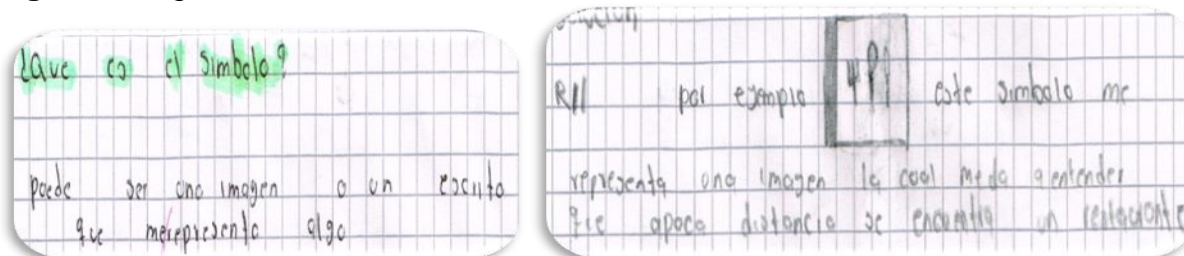 ¿Que es el simbolo?
puede ser una imagen o un escrito
que me representa algo
R// por ejemplo este simbolo me
representa una imagen la cual me da a entender
que apoca distancia se encuentra un